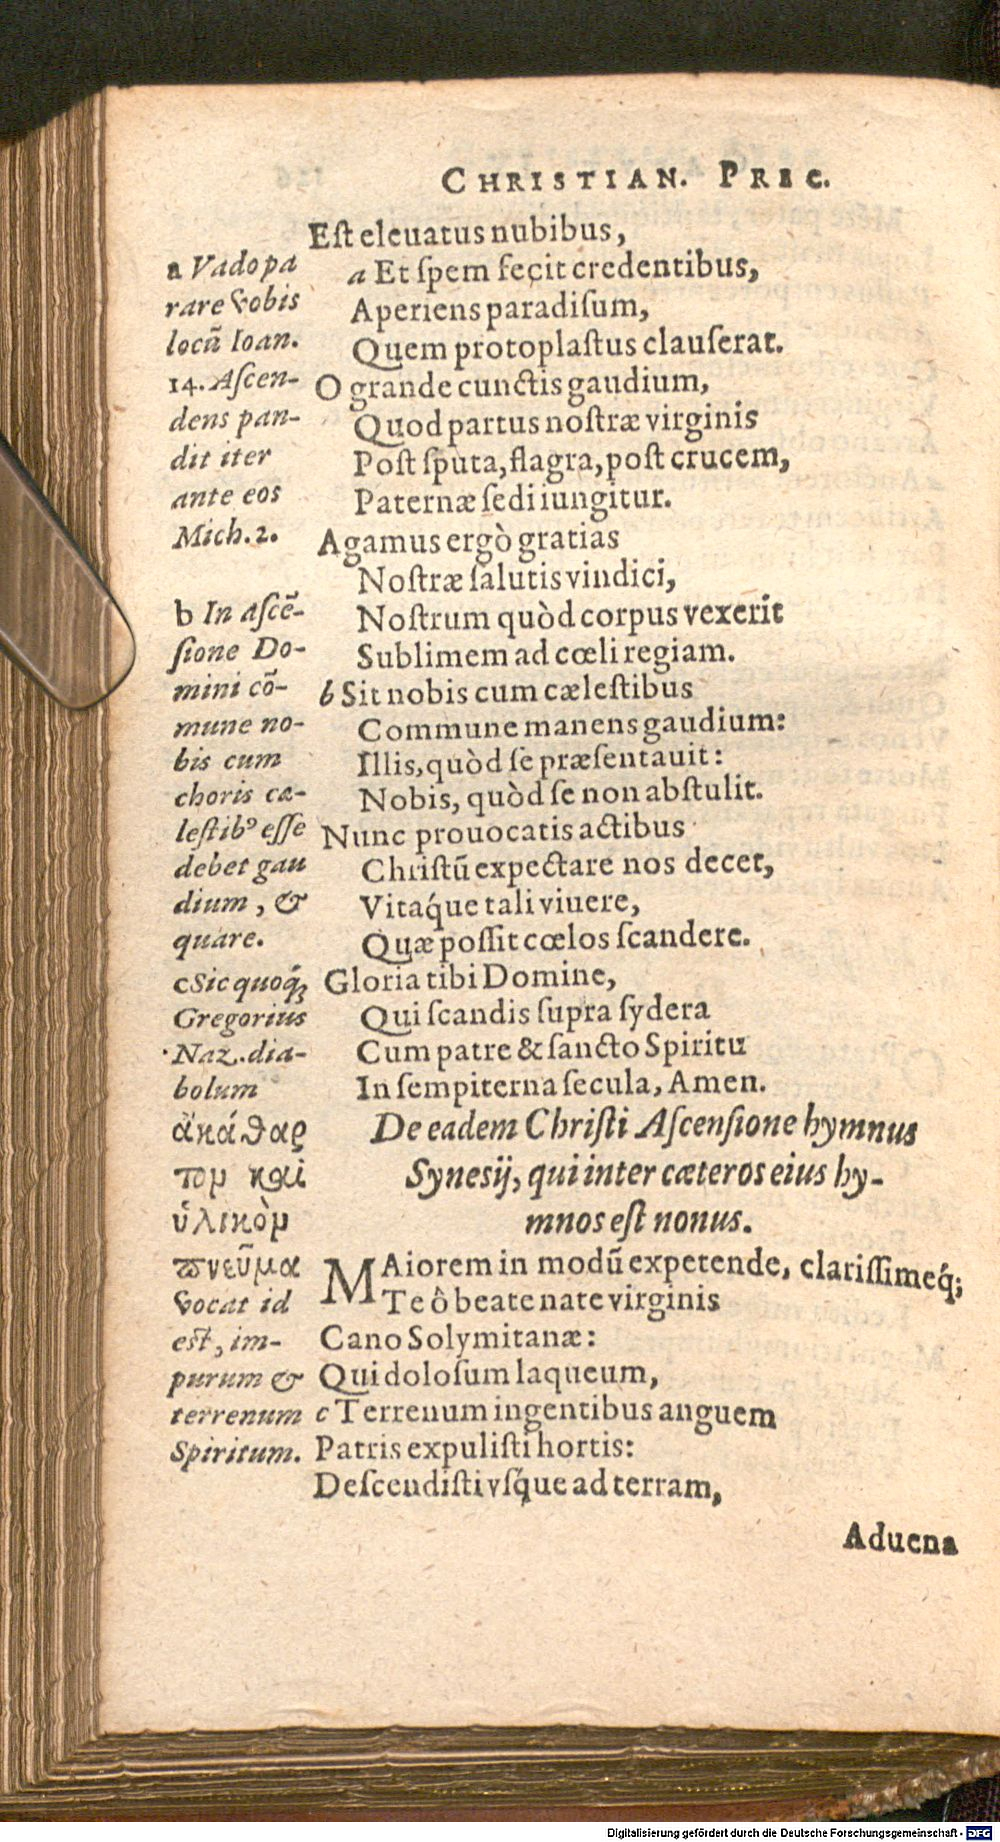 CHRISTIAN. PREC.
Est eleuatus nubibus,
a Et spem fecit credentibus,
Aperiens paradisum,
Quem protoplastus clauserat.
O grande cunctis gaudium,
Quod partus nostræ virginis
Post sputa, flagra, post crucem,
Paternæ sedi iungitur.
Agamus ergò gratias
Nostræ salutis vindici,
Nostrum quòd corpus vexerit
Sublimem ad cœli regiam.
b Sit nobis cum cælestibus
Commune manens gaudium:
Illis, quòd se præsentauit:
Nobis, quòd se non abstulit.
Nunc prouocatis actibus
Christū expectare nos decet,
Vitáque tali viuere,
Quæ possit cœlos scandere.
Gloria tibi Domine,
Qui scandis supra sydera
Cum patre & sancto Spiritu
In sempiterna secula, Amen.
De eadem Christi Ascensione hymnus
Synesij, qui inter cæteros eius hy-
mnos est nonus.
MAiorem in modū expetende, clarissimeq́;
Te ô beate nate virginis
Cano Solymitanæ:
Qui dolosum laqueum,
c Terrenum ingentibus anguem
Patris expulisti hortis:
Descendisti vsq́ue ad terram,
Aduena
a Vado pa
rare vobis
locū Ioan.
14. Ascen-
dens pan-
dit iter
ante eos
Mich. 2.
b In ascē-
sione Do-
mini cō-
mune no-
bis cum
choris cæ-
lestibꝰ esse
debet gau
dium, &
quare.
c Sic quoq́ꝫ
Gregorius
Naz. dia-
bolum
ἀκάθαρ
τον καὶ
ὑλικὸν
πνεῦμα
vocat id
est, im-
purum &
terrenum
Spiritum.
Digitalisierung gefördert durch die Deutsche Forschungsgemeinschaft - DFG